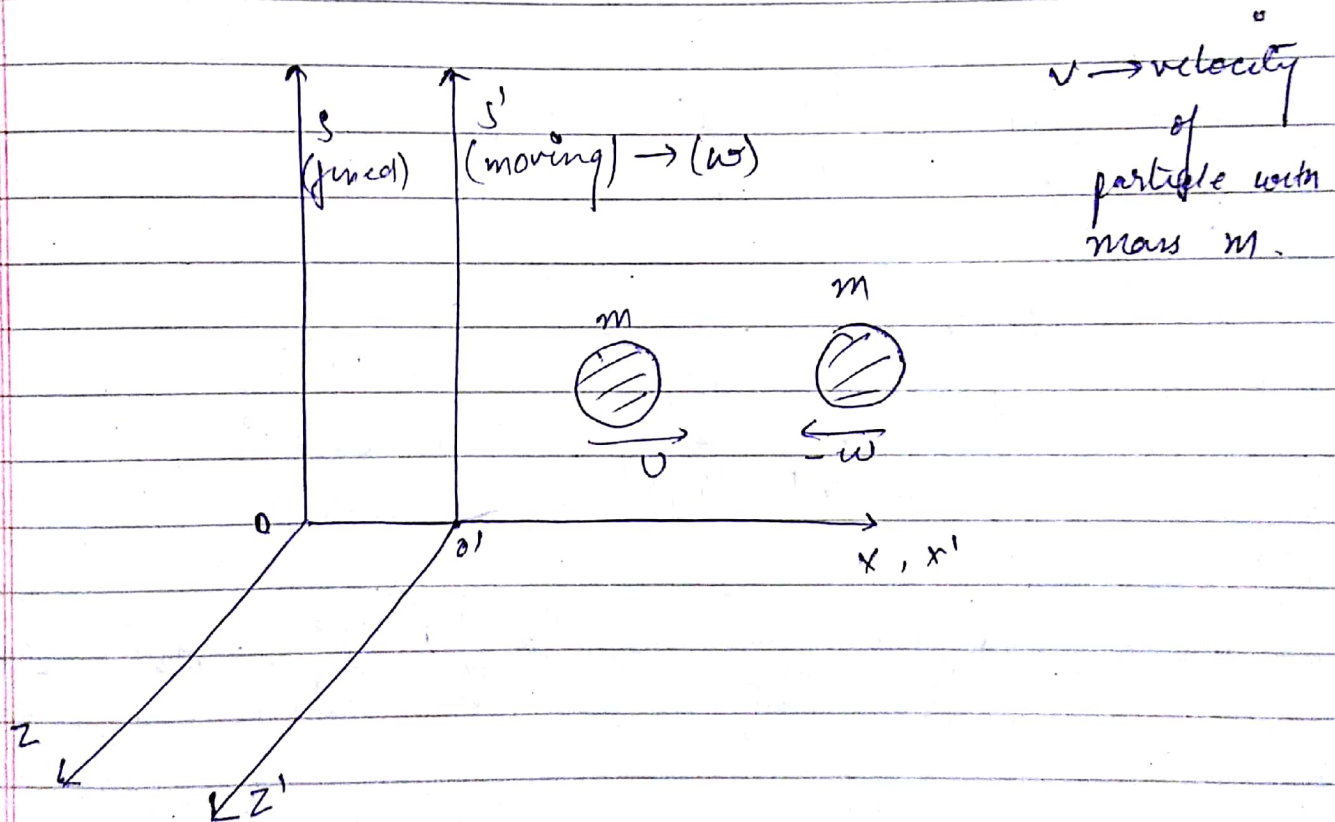 v → velocity
of
particle with
mass m.
S
(fixed)
S'
(moving) → (w)
m
m
v
-w
O
O'
x, x'
Z
Z'